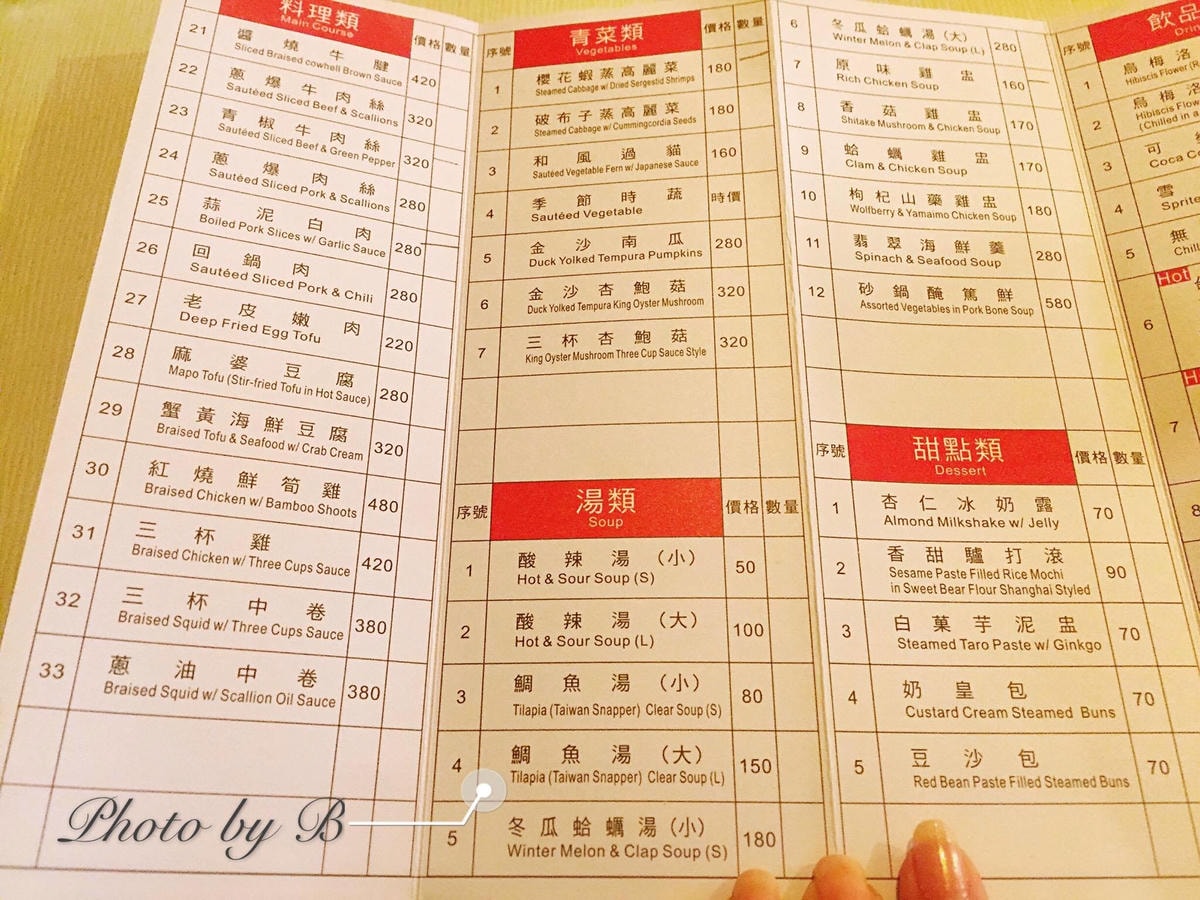 料理類
Main Course
價格 數量
21 醬燒牛腱 420
Sliced Braised cowhell Brown Sauce
22 蔥爆牛肉絲 320
Sautéed Sliced Beef & Scallions
23 青椒牛肉絲 320
Sautéed Sliced Beef & Green Pepper
24 蔥爆肉絲 280
Sautéed Sliced Pork & Scallions
25 蒜泥白肉 280
Boiled Pork Slices w/ Garlic Sauce
26 回鍋肉 280
Sautéed Sliced Pork & Chili
27 老皮嫩肉 220
Deep Fried Egg Tofu
28 麻婆豆腐 280
Mapo Tofu (Stir-fried Tofu in Hot Sauce)
29 蟹黃海鮮豆腐 320
Braised Tofu & Seafood w/ Crab Cream
30 紅燒鮮筍雞 480
Braised Chicken w/ Bamboo Shoots
31 三杯雞 420
Braised Chicken w/ Three Cups Sauce
32 三杯中卷 380
Braised Squid w/ Three Cups Sauce
33 蔥油中卷 380
Braised Squid w/ Scallion Oil Sauce
序號 青菜類 價格 數量
Vegetables
1 櫻花蝦蒸高麗菜 180
Steamed Cabbage w/ Dried Sergestid Shrimps
2 破布子蒸高麗菜 180
Steamed Cabbage w/ Cummingcordia Seeds
3 和風過貓 160
Sautéed Vegetable Fern w/ Japanese Sauce
4 季節時蔬 時價
Sautéed Vegetable
5 金沙南瓜 280
Duck Yolked Tempura Pumpkins
6 金沙杏鮑菇 320
Duck Yolked Tempura King Oyster Mushroom
7 三杯杏鮑菇 320
King Oyster Mushroom Three Cup Sauce Style
序號 湯類 價格 數量
Soup
1 酸辣湯（小） 50
Hot & Sour Soup (S)
2 酸辣湯（大） 100
Hot & Sour Soup (L)
3 鯛魚湯（小） 80
Tilapia (Taiwan Snapper) Clear Soup (S)
4 鯛魚湯（大） 150
Tilapia (Taiwan Snapper) Clear Soup (L)
5 冬瓜蛤蠣湯（小） 180
Winter Melon & Clap Soup (S)
6 冬瓜蛤蠣湯（大） 280
Winter Melon & Clap Soup (L)
7 原味雞盅 160
Rich Chicken Soup
8 香菇雞盅 170
Shitake Mushroom & Chicken Soup
9 蛤蠣雞盅 170
Clam & Chicken Soup
10 枸杞山藥雞盅 180
Wolfberry & Yamaimo Chicken Soup
11 翡翠海鮮羹 280
Spinach & Seafood Soup
12 砂鍋醃篤鮮 580
Assorted Vegetables in Pork Bone Soup
序號 甜點類 價格 數量
Dessert
1 杏仁冰奶露 70
Almond Milkshake w/ Jelly
2 香甜驢打滾 90
Sesame Paste Filled Rice Mochi
in Sweet Bear Flour Shanghai Styled
3 白菓芋泥盅 70
Steamed Taro Paste w/ Ginkgo
4 奶皇包 70
Custard Cream Steamed Buns
5 豆沙包 70
Red Bean Paste Filled Steamed Buns
序號 飲品
1 烏梅洛
Hibiscis Flower
2 烏梅洛
Hibiscis Flow
(Chilled in a
3 可
Coca Co
4 雪
Sprite
5 無
Chill
Hot
6
7
8
Photo by B